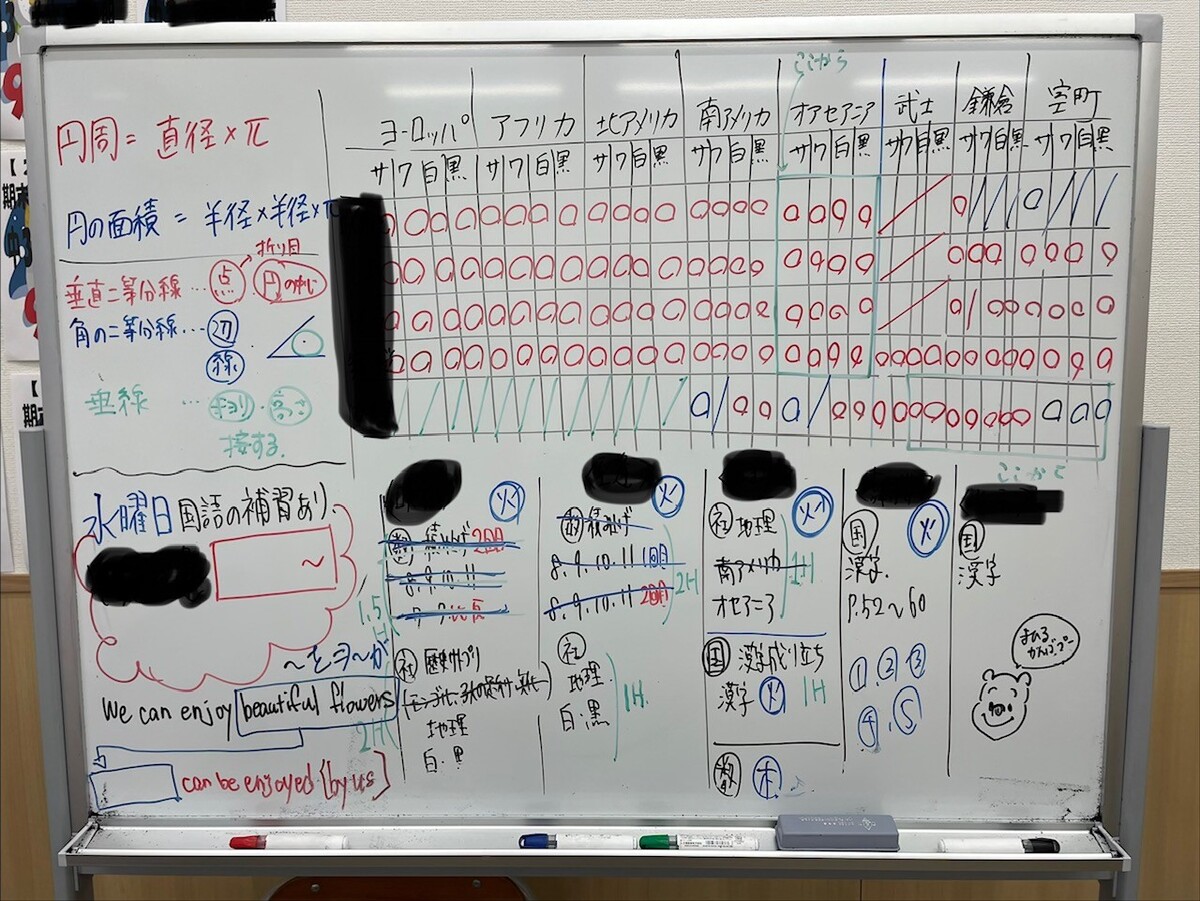 円周 = 直径×π
円の面積 = 半径×半径×π
折り目
垂直二等分線…点 円の中心
角の二等分線…②
線
垂線 … キョリ・高さ
接する.
ここから
ヨーロッパ アフリカ 北アメリカ 南アメリカ オアセアニア 武士 鎌倉 室町
サ ワ 白 黒 サ ワ 白 黒 サ ワ 白 黒 サ ワ 白 黒 サ ワ 白 黒 サ ワ 白 黒 サ ワ 白 黒 サ ワ 白 黒
ここから
水曜日 国語の補習あり.
~
~を ヨ ~が
We can enjoy beautiful flowers
can be enjoyed [by us]
火
数 積み上げ 2回
8.9.10.11
1.5H
社 歴史
地理
白・黒
2H
火
数 積み上げ
8.9.10.11 1回
8.9.10.11 2回
2H
社
地理.
白・黒
1H
火
社 地理
南アメリカ 1H
オセアニア
国 漢字成り立ち
漢字 火 1H
数 本
火
国
漢字.
P.52~60
① ② ③
④ ⑤
国
漢字
まひる
がんばっぷー